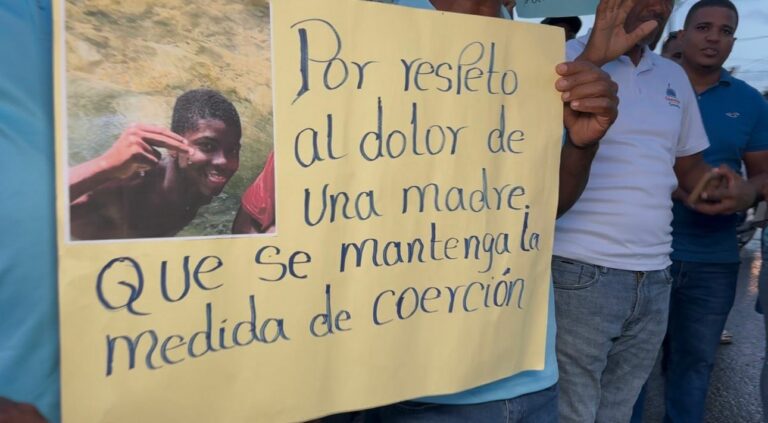 Por respeto
al dolor de
una madre.
Que se mantenga la
medida de coerción